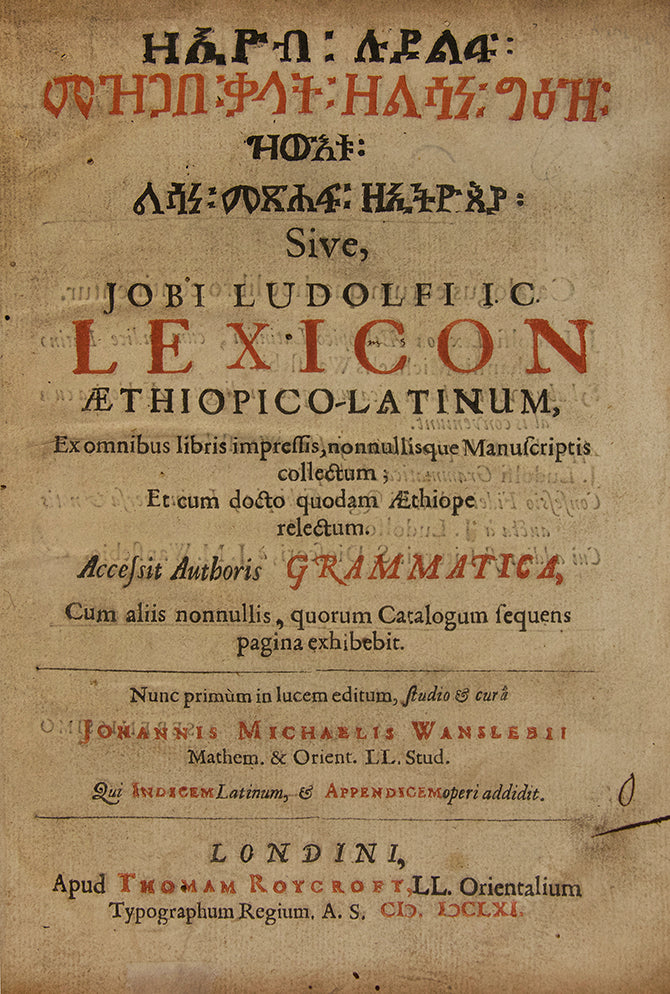 ዘኢዮብ፡ ሉዶልፍ፡
መዝገበ፡ቃላት፡ዘልሳነ፡ግዕዝ፡
ዝውእቱ፡
ልሳነ፡መጽሐፍ፡ ዘኢትዮጵያ፡
Sive,
JOBI LUDOLFI I.C.
LEXICON
ÆTHIOPICO-LATINUM,
Ex omnibus libris impreſſis, nonnullisque Manuſcriptis
collectum;
Et cum docto quodam Æthiope
relectum.
Acceſsit Authoris GRAMMATICA,
Cum aliis nonnullis, quorum Catalogum ſequens
pagina exhibebit.
Nunc primùm in lucem editum, ſtudio & curâ
JOHANNIS MICHAELIS WANSLEBII
Mathem. & Orient. LL. Stud.
Qui INDICEM Latinum, & APPENDICEM operi addidit.
LONDINI,
Apud THOMAM ROYCROFT, LL. Orientalium
Typographum Regium. A. S. CIↃ. IↃCLXI.